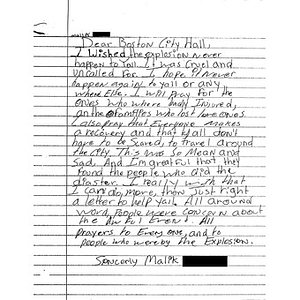 Dear Boston City Hall,
I Wished the explosion never
happen to Yall. It was cruel and
uncalled for. I hope it never
happen again to yall or any
where Else. I will Pray for the
ones who where badly Injured,
an the families who lost love ones.
I also pray that Everyone makes
a recovery and that Yall don't
have to be scared, to travel around
the city. This was so Mean and
Sad. And Im grateful that they
found the people who did the
disaster. I really wish that
I can do, more, than Just right
a letter to help yall. All around
word, People were concern about
the All
prayers to Every one, and to
people who wereby the Explosion.
Sincerly Malik